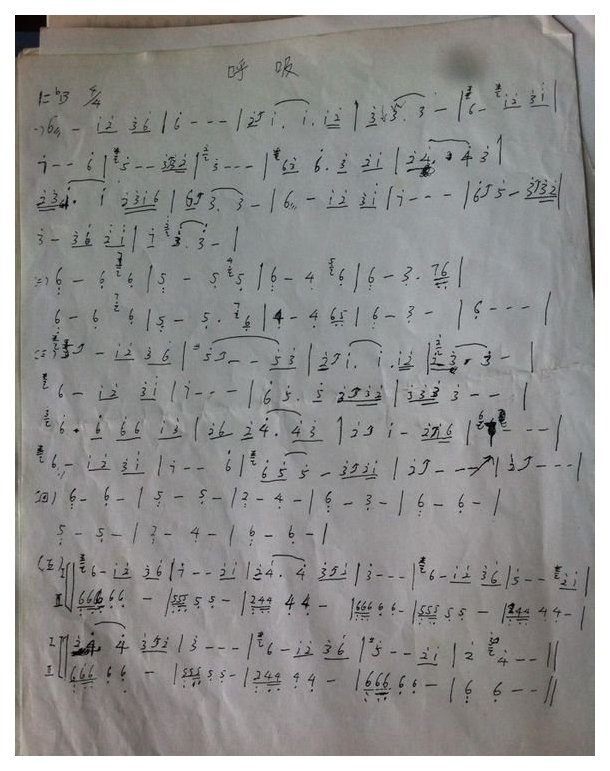 呼 吸
1=ᵇB 4/4
6 - i̇2̇ 3̇6 | 6 - - - | 2̇ i . i . i̇2̇ | 3̇ 3̇ . 3̇ - | 6 - i̇2̇ 3̇i |
i - - 6 | 5 - - 3̇3̇2̇ | 3̇ - - - | 62̇ 6 . 3̇ 2̇i | 2̇4̇ . 4̇ 3̇ |
2̇3̇4̇ . i 2̇3̇i6 | 6 3̇ . 3̇ - | 6 - i̇2̇ 3̇i | i - - - | 6 5 - 3̇5̇3̇2̇ |
3̇ - 3̇6 2̇i | i 3̇ . 3̇ - |
(二) 6 - 6 6 | 5 - 5 5 | 6 - 4 6 | 6 - 3 . 76 |
6 - 6 6 | 5 - 5 . 6 | 4 - 4 65 | 6 - 3 - | 6 - - - |
(三) - i̇2̇ 36 | 5 - - 53 | 2̇ i . i . i̇2̇ | 2̇3̇ . 3̇ - |
6 - i̇2̇ 3̇i | i - - - | 6 5 . 5 3532 | 333 3 - - |
6 . 6 66 i3 | 26 24 . 43 | 2 i - 2i6 | - - - |
6 - i̇2̇ 3̇i | i - - 6 | 6 5 5 - 3521 | 2 - - - | 2 - - - |
(四) 6 - 6 - | 5 - 5 - | 2 - 4 - | 6 - 3 - | 6 - 6 - |
5 - 5 - | 2 - 4 - | 6 - 6 - |
(五) I 6 - i̇2̇ 36 | i - - 2i | 24 . 4 352 | 3 - - - | 6 - i̇2̇ 36 | 5 - - 2i |
II 666 66 - | 555 55 - | 244 44 - | 666 66 - | 555 55 - | 244 44 - |
I 34 . 4 352 | 3 - - - | 6 - i̇2̇ 36 | 5 - - 2i | 2 4 - - ||
II 666 66 - | 555 55 - | 244 44 - | 666 66 - | 6 6 - - ||